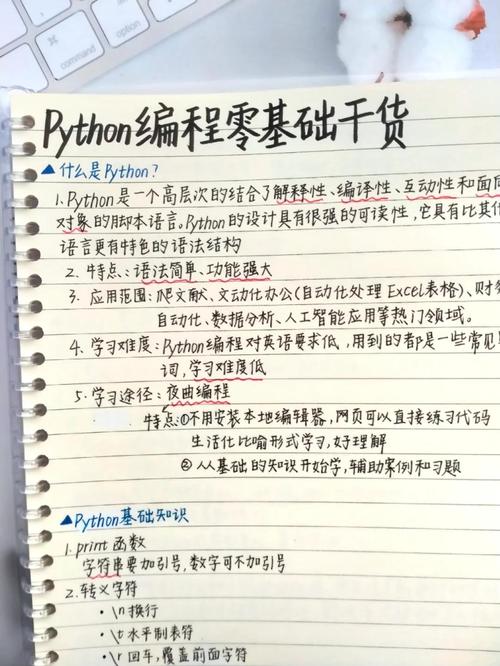 command
option
control
Python编程零基础干货
▲什么是Python?
1.Python是一个高层次的结合了解释性、编译性、互动性和面向
对象的脚本语言。Python的设计具有很强的可读性,它具有比其
语言更有特色的语法结构
2. 特点:语法简单、功能强大
3. 应用范围:爬文献、文动化办公(自动化处理Excel表格)、财务
自动化、数据分析、人工智能应用等热门领域。
4. 学习难度:Python编程对英语要求低,用到的都是一些常见
词,学习难度低
5. 学习途径:夜曲编程
特点:①不用安装本地编辑器,网页可以直接练习代码
生活化比喻形式学习,好理解
②从基础的知识开始学,辅助案例和习题
▲Python基础知识
1.print 函数
字符串要加引号,数字可不加引号
2.转义字符
·\n 换行
·\t 水平制表符
·\r 回车,覆盖前面字符